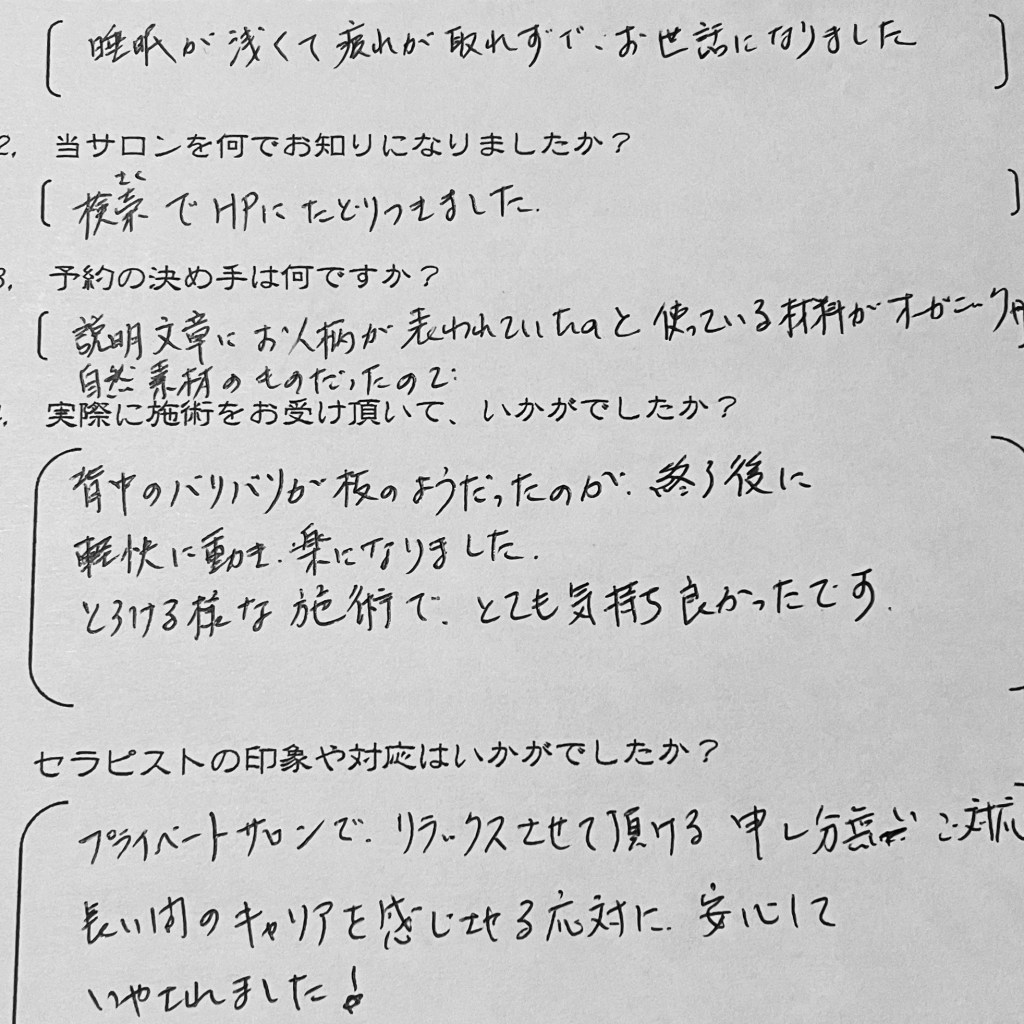 睡眠が浅くて疲れが取れずで、お世話になりました
2. 当サロンを何でお知りになりましたか？
さく
検索でHPにたどりつきました.
3. 予約の決め手は何ですか？
説明文章にお人柄が表われていたのと使っている材料がオーガニック
自然素材のものだったので
実際に施術をお受け頂いて、いかがでしたか？
背中のバリバリが板のようだったのが、終了後に
軽快に動き、楽になりました.
とろける様な施術で、とても気持ち良かったです.
セラピストの印象や対応はいかがでしたか？
プライベートサロンで、リラックスさせて頂ける申し分無いご対応
長い間のキャリアを感じさせる応対に、安心して
いやされました！